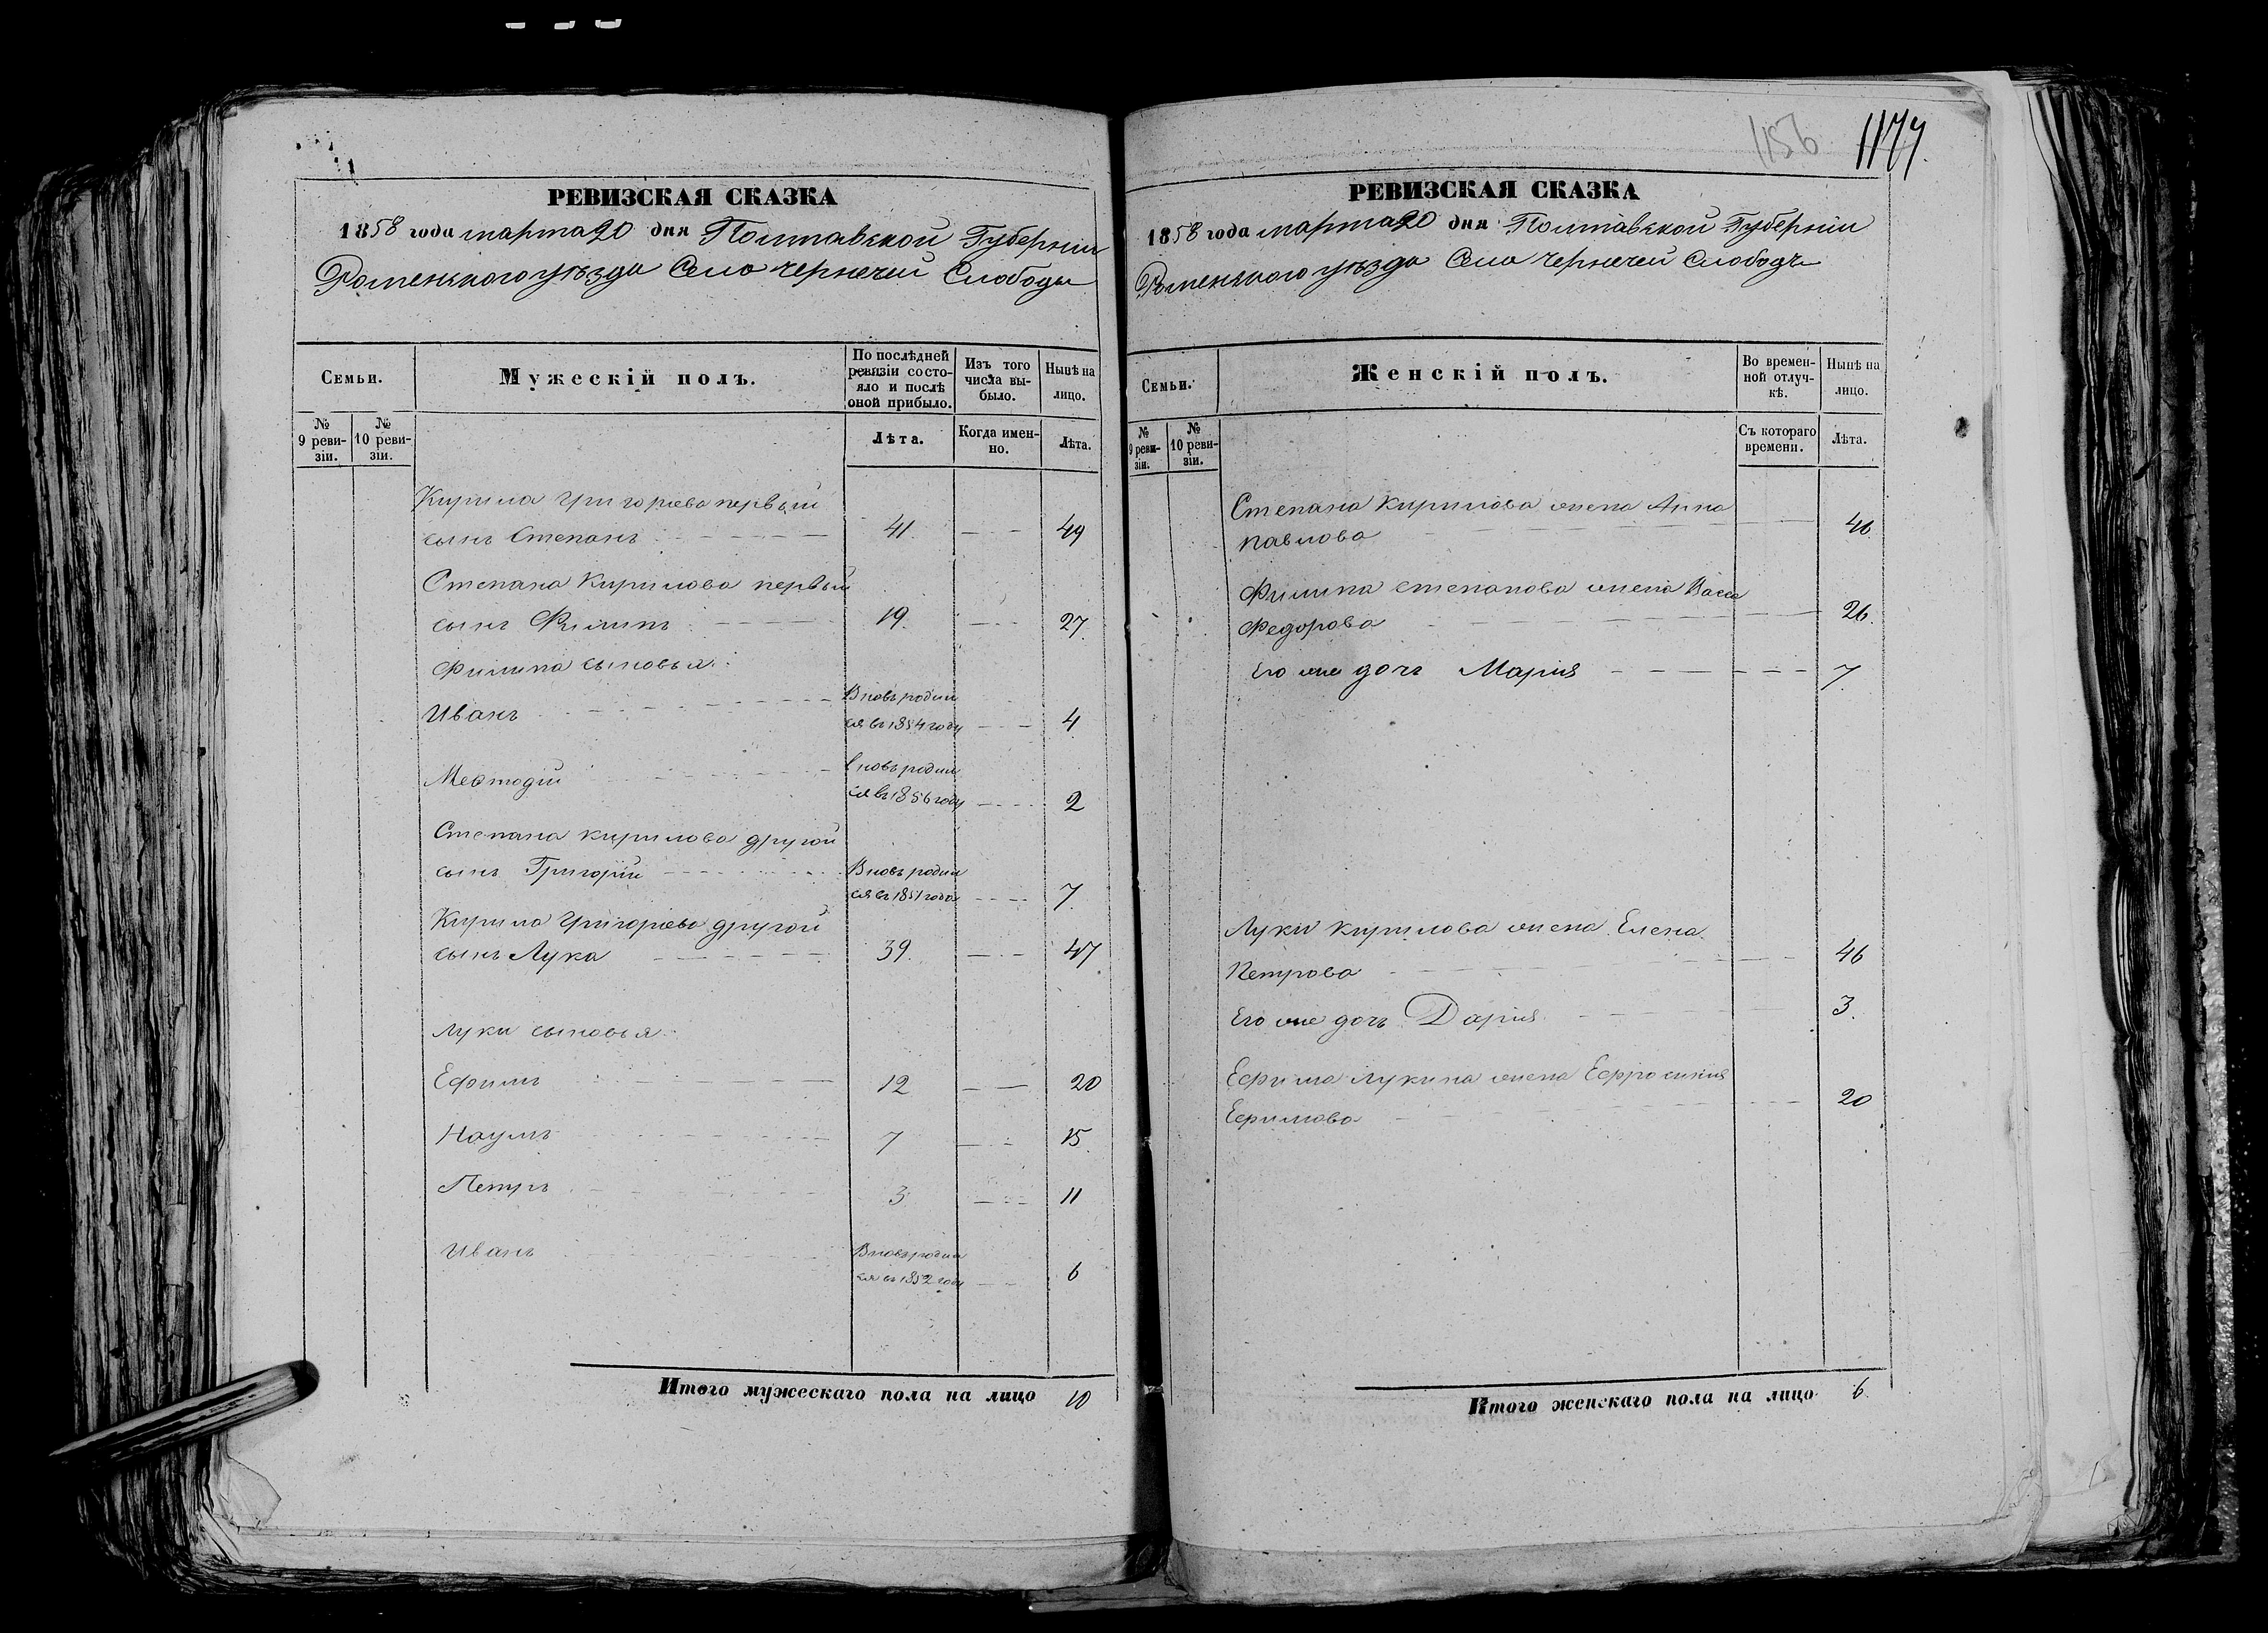 1156 1177.
РЕВИЗСКАЯ СКАЗКА
1858 года марта 20 дня Полтавской Губерніи
Роменьского уѣзда Села Чернечей Слободы
Семьи.
Мужескій полъ.
По послѣдней ревизіи состояло и послѣ оной прибыло.
Изъ того числа выбыло.
Нынѣ на лицо.
№ 9 ревизіи.
№ 10 ревизіи.
Лѣта.
Когда именно.
Лѣта.
Кирила Григорьева первый
сынъ Степанъ 41. 49
Степана Кирилова первый
сынъ Филипъ 19. 27.
Филипа сыновья:
Иванъ Вновь родил
ся въ 1854 году 4
Мефтодій вновь родил
ся въ 1856 году 2
Степана Кирилова другой
сынъ Григорій Вновь родил
ся въ 1851 года 7
Кирила Григорьева другой
сынъ Лука 39. 47
Луки сыновья
Ефимъ 12 20
Наумъ 7 15.
Петръ 3 11
Иванъ Вновь родил
ся въ 1852 году 6
Итого мужескаго пола на лицо 10
РЕВИЗСКАЯ СКАЗКА
1858 года марта 20 дня Полтавской Губерніи
Роменьского уѣзда Села Чернечей Слободы
Семьи.
Женскій полъ.
Во временной отлучкѣ.
Нынѣ на лицо.
№ 9 ревизіи.
№ 10 ревизіи.
Съ котораго времени.
Лѣта.
Степана Кирилова жена Анна
Павлова 46.
Филипа Степанова жена Васса
Федорова 26.
Его же дочь Марія 7.
Луки Кирилова жена Елена
Петрова 46
Его же дочь Дарія 3.
Ефима Лукина жена Ефросинія
Ефимова 20
Итого женскаго пола на лицо 6.